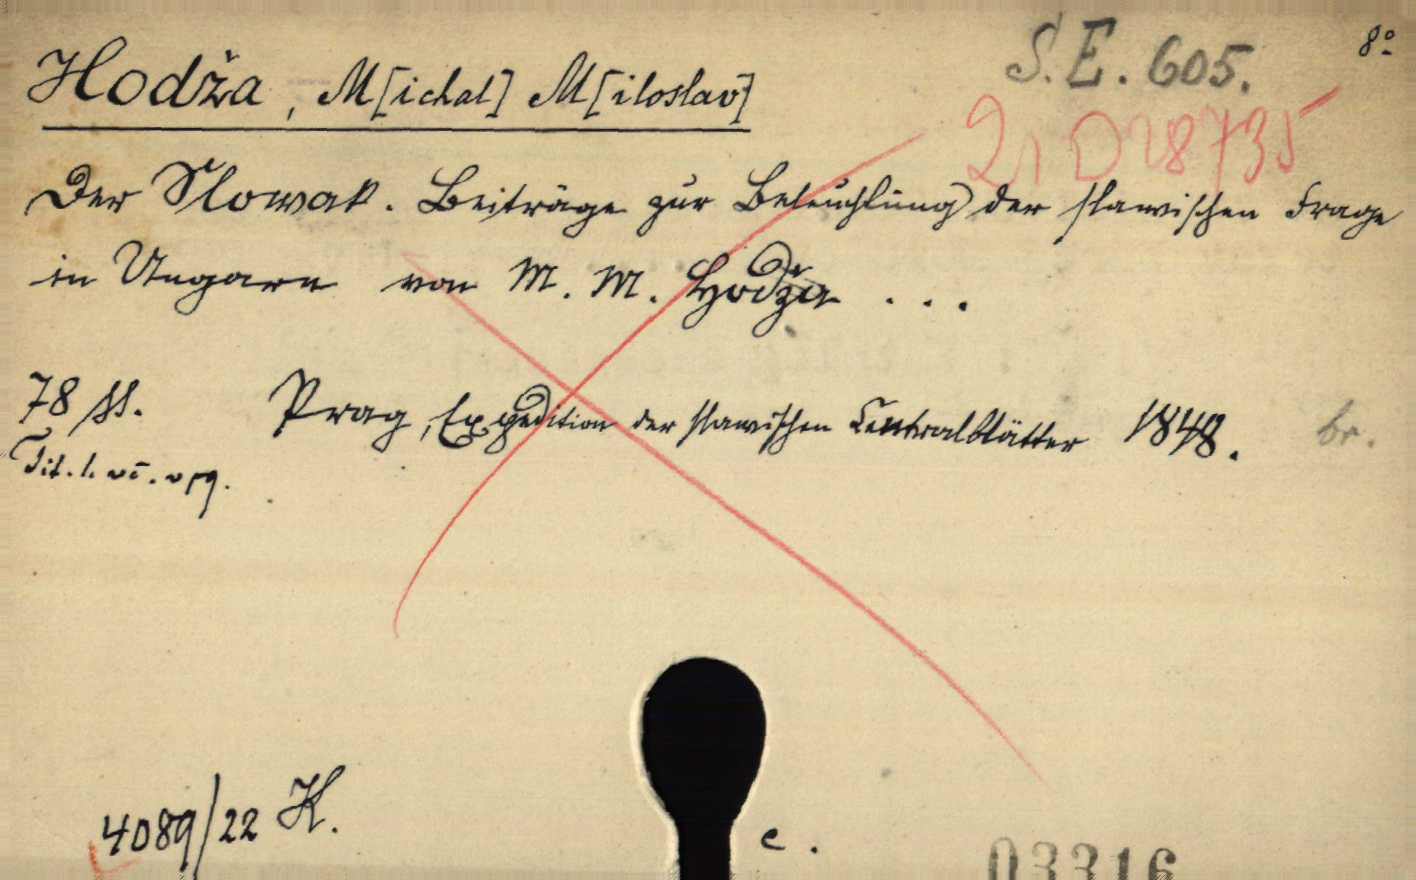 S.E. 605. 8º
Hodža, M[ichal] M[iloslav]
21 D 28735
Der Slowak. Beiträge zur Beleuchtung der slawischen Frage
in Ungarn von M. M. Hodža ...
78 SS. Prag, Expedition der slawischen Centralblätter 1848. br.
Tit. l.
4089/22 K.
e.
03316